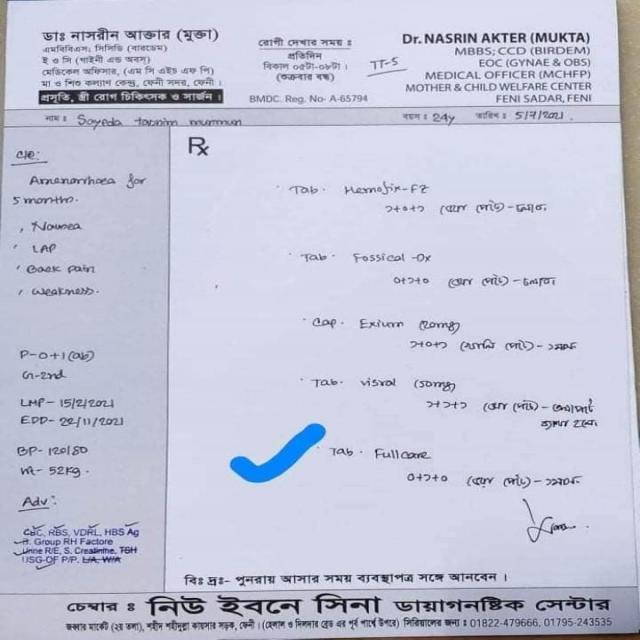 ডাঃ নাসরীন আক্তার (মুক্তা)
এমবিবিএস; সিসিডি (বারডেম)
ই ও সি (গাইনী এন্ড অবস)
মেডিকেল অফিসার, (এম সি এইচ এফ পি)
মা ও শিশু কল্যাণ কেন্দ্র, ফেনী সদর, ফেনী।
প্রসূতি, স্ত্রী রোগ চিকিৎসক ও সার্জন।
রোগী দেখার সময় ঃ
প্রতিদিন
বিকাল ০৫টা-০৮টা।
(শুক্রবার বন্ধ)
TT-5
BMDC. Reg. No- A-65794
Dr. NASRIN AKTER (MUKTA)
MBBS; CCD (BIRDEM)
EOC (GYNAE & OBS)
MEDICAL OFFICER (MCHFP)
MOTHER & CHILD WELFARE CENTER
FENI SADAR, FENI
নাম ঃ Sayeda tasnim mummun বয়স ঃ 24y তারিখ ঃ 5/7/2021.
C/C:
Amenorrhoea for
5 months.
, Nausea
' LAP
' Back pain
, weakness.
P-0+1(ab)
G-2nd
LMP- 15/2/2021
EDD- 22/11/2021
BP- 120/80
Wt- 52kg.
Adv:
CBC, RBS, VDRL, HBS Ag
H. Group RH Factore
Urine R/E, S. Creatinine, TSH
USG-OF P/P. L/A, W/A
Rx
Tab. Hemofix-FZ
১+০+১
Tab. Fossical-Ox
০+১+০
Cap. Exium (20mg)
১+০+১
Tab. Visral (50mg)
১+১+১
Tab. Fullcare
০+১+০
বিঃ দ্রঃ- পুনরায় আসার সময় ব্যবস্থাপত্র সঙ্গে আনবেন।
চেম্বার ঃ নিউ ইবনে সিনা ডায়াগনষ্টিক সেন্টার
জব্বার মার্কেট (২য় তলা), শহীদ শহীদুল্লা কায়সার সড়ক, ফেনী। (হেলাল ও দিলদার ব্রেড এর পূর্ব পার্শ্বে উপরে) সিরিয়ালের জন্য ঃ 01822-479666, 01795-243535